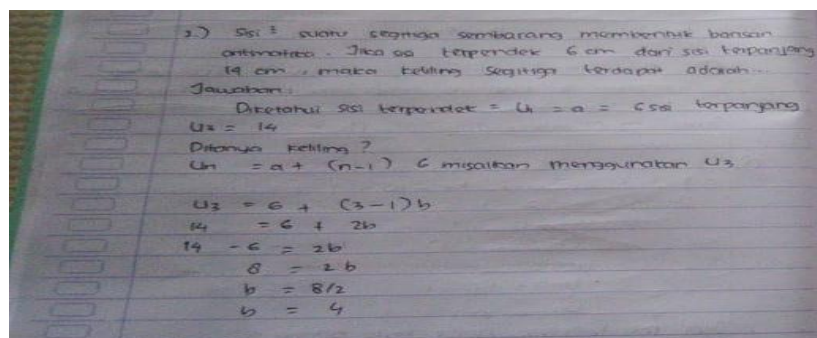 2.) Sisi² suatu segitiga sembarang membentuk barisan
aritmatika. Jika sisi terpendek 6 cm dari sisi terpanjang
14 cm, maka keliling segitiga terdapat adalah...
Jawaban:
Diketahui sisi terpendek = U₁ = a = 6 sisi terpanjang
U₃ = 14
Ditanya keliling ?
Un = a + (n-1) 6 misalkan menggunakan U₃
U₃ = 6 + (3-1)b
14 = 6 + 2b
14 - 6 = 2b
8 = 2b
b = 8/2
b = 4